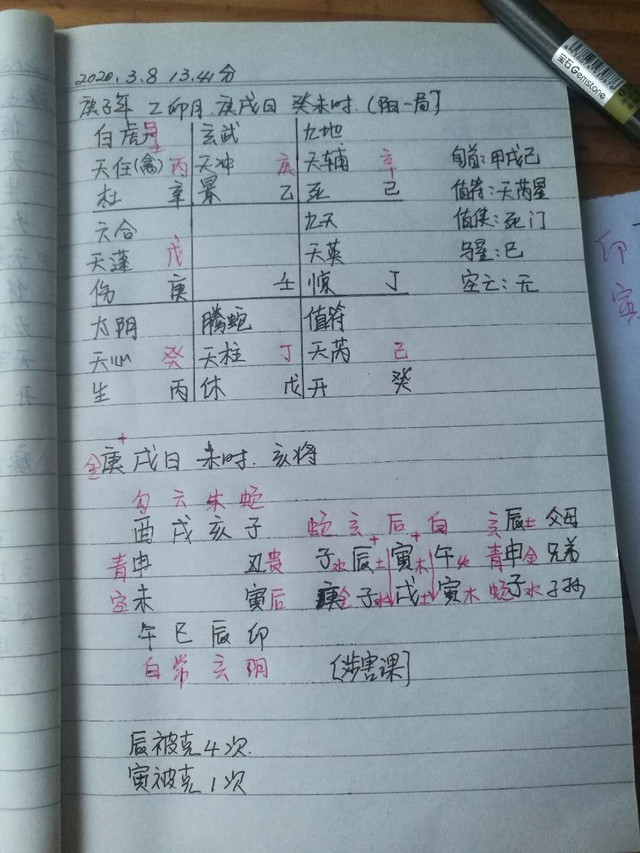 2020.3.8 13.41分
庚子年 乙卯月.庚戌日 癸未时.(阳一局]
白虎 玄武 九地
天任(禽) 丙 天冲 庚 天辅 辛 旬首:甲戌己
杜 辛 景 乙 死 己 值符:天芮星
六合 九天 值使:死门
天蓬 戊 天英 马星:巳
伤 庚 壬 惊 丁 空亡:无
太阴 腾蛇 值符
天心 癸 天柱 丁 天芮 己
生 丙 休 戊 开 癸
金庚戌日 未时.亥将
勾 六 朱 蛇
酉 戌 亥 子 蛇 玄 后 白 玄辰土 父母
青申 丑贵 子水 辰土 寅木 午火 青申金 兄弟
空未 寅后 庚金 子水 戌土 寅木 蛇子水 子孙
午 巳 辰 卯
白 常 玄 阴 [涉害课]
辰被克4次.
寅被克1次
金石Gemstone
印
寅